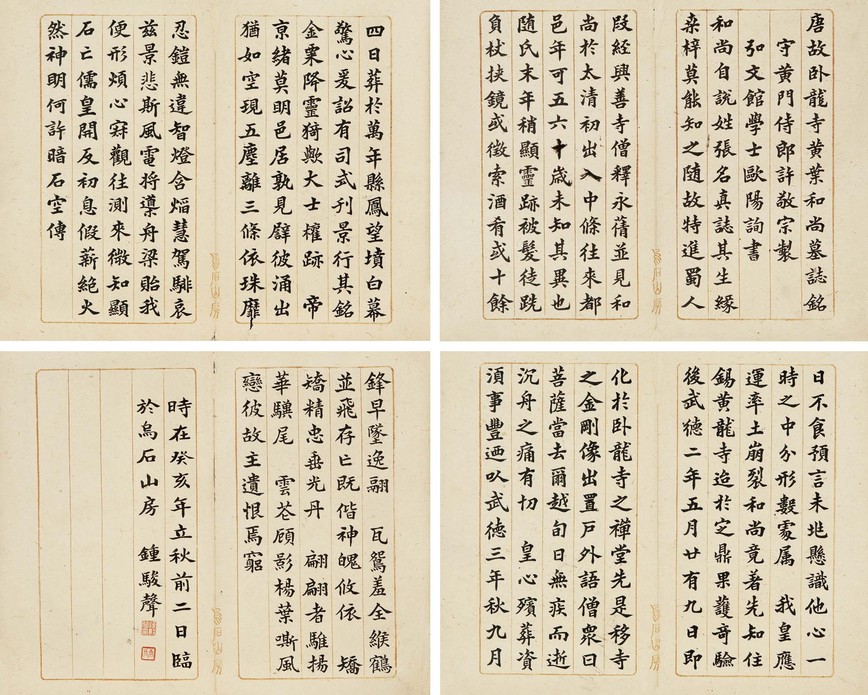 唐故卧龍寺黄葉和尚墓誌銘
守黄門侍郎許敬宗製
弘文館學士歐陽詢書
和尚自說姓張名真誌其生緣
桒梓莫能知之隨故特進蜀人
段經興善寺僧釋永蒨並見和
尚於太清初出入中條往來都
邑年可五六十歲未知其異也
隨氏末年稍顯靈跡被髮徒跣
負杖挾鏡或徵索酒肴或十餘
日不食預言未兆懸識他心一
時之中分形數處属 我皇應
運率土崩裂和尚竟著先知住
錫黄龍寺迨於定鼎果護奇驗
後武德二年五月廿有九日即
化於卧龍寺之禪堂先是移寺
之金剛像出置戸外語僧衆曰
菩薩當去爾越旬日無疾而逝
沉舟之痛有切 皇心殯葬資
湏事豐廼以武德三年秋九月
四日葬於萬年縣鳳望墳白幕
驚心爰詔有司式刊景行其銘
金粟降靈猗歟大士權跡 帝
亰緒莫明邑居孰見譬彼涌出
猶如空現五塵離三條依珠靡
忍鎧無違智燈含焰慧駕騑哀
兹景悲斯風電将導舟梁貽我
便形煩心寂觀往測來微知顯
石亡儒皇開反初息假薪絶火
然神明何許暗石空傳
鋒早墜逸翮 瓦鴛羞全緱鶴
並飛存亡既偕神魄攸依 矯
矯精忠垂光丹 翩翩者騅揚
華驥尾 雲苍顧影楊葉嘶風
戀彼故主遺恨焉窮
時在癸亥年立秋前二日臨
於烏石山房 鍾駿聲